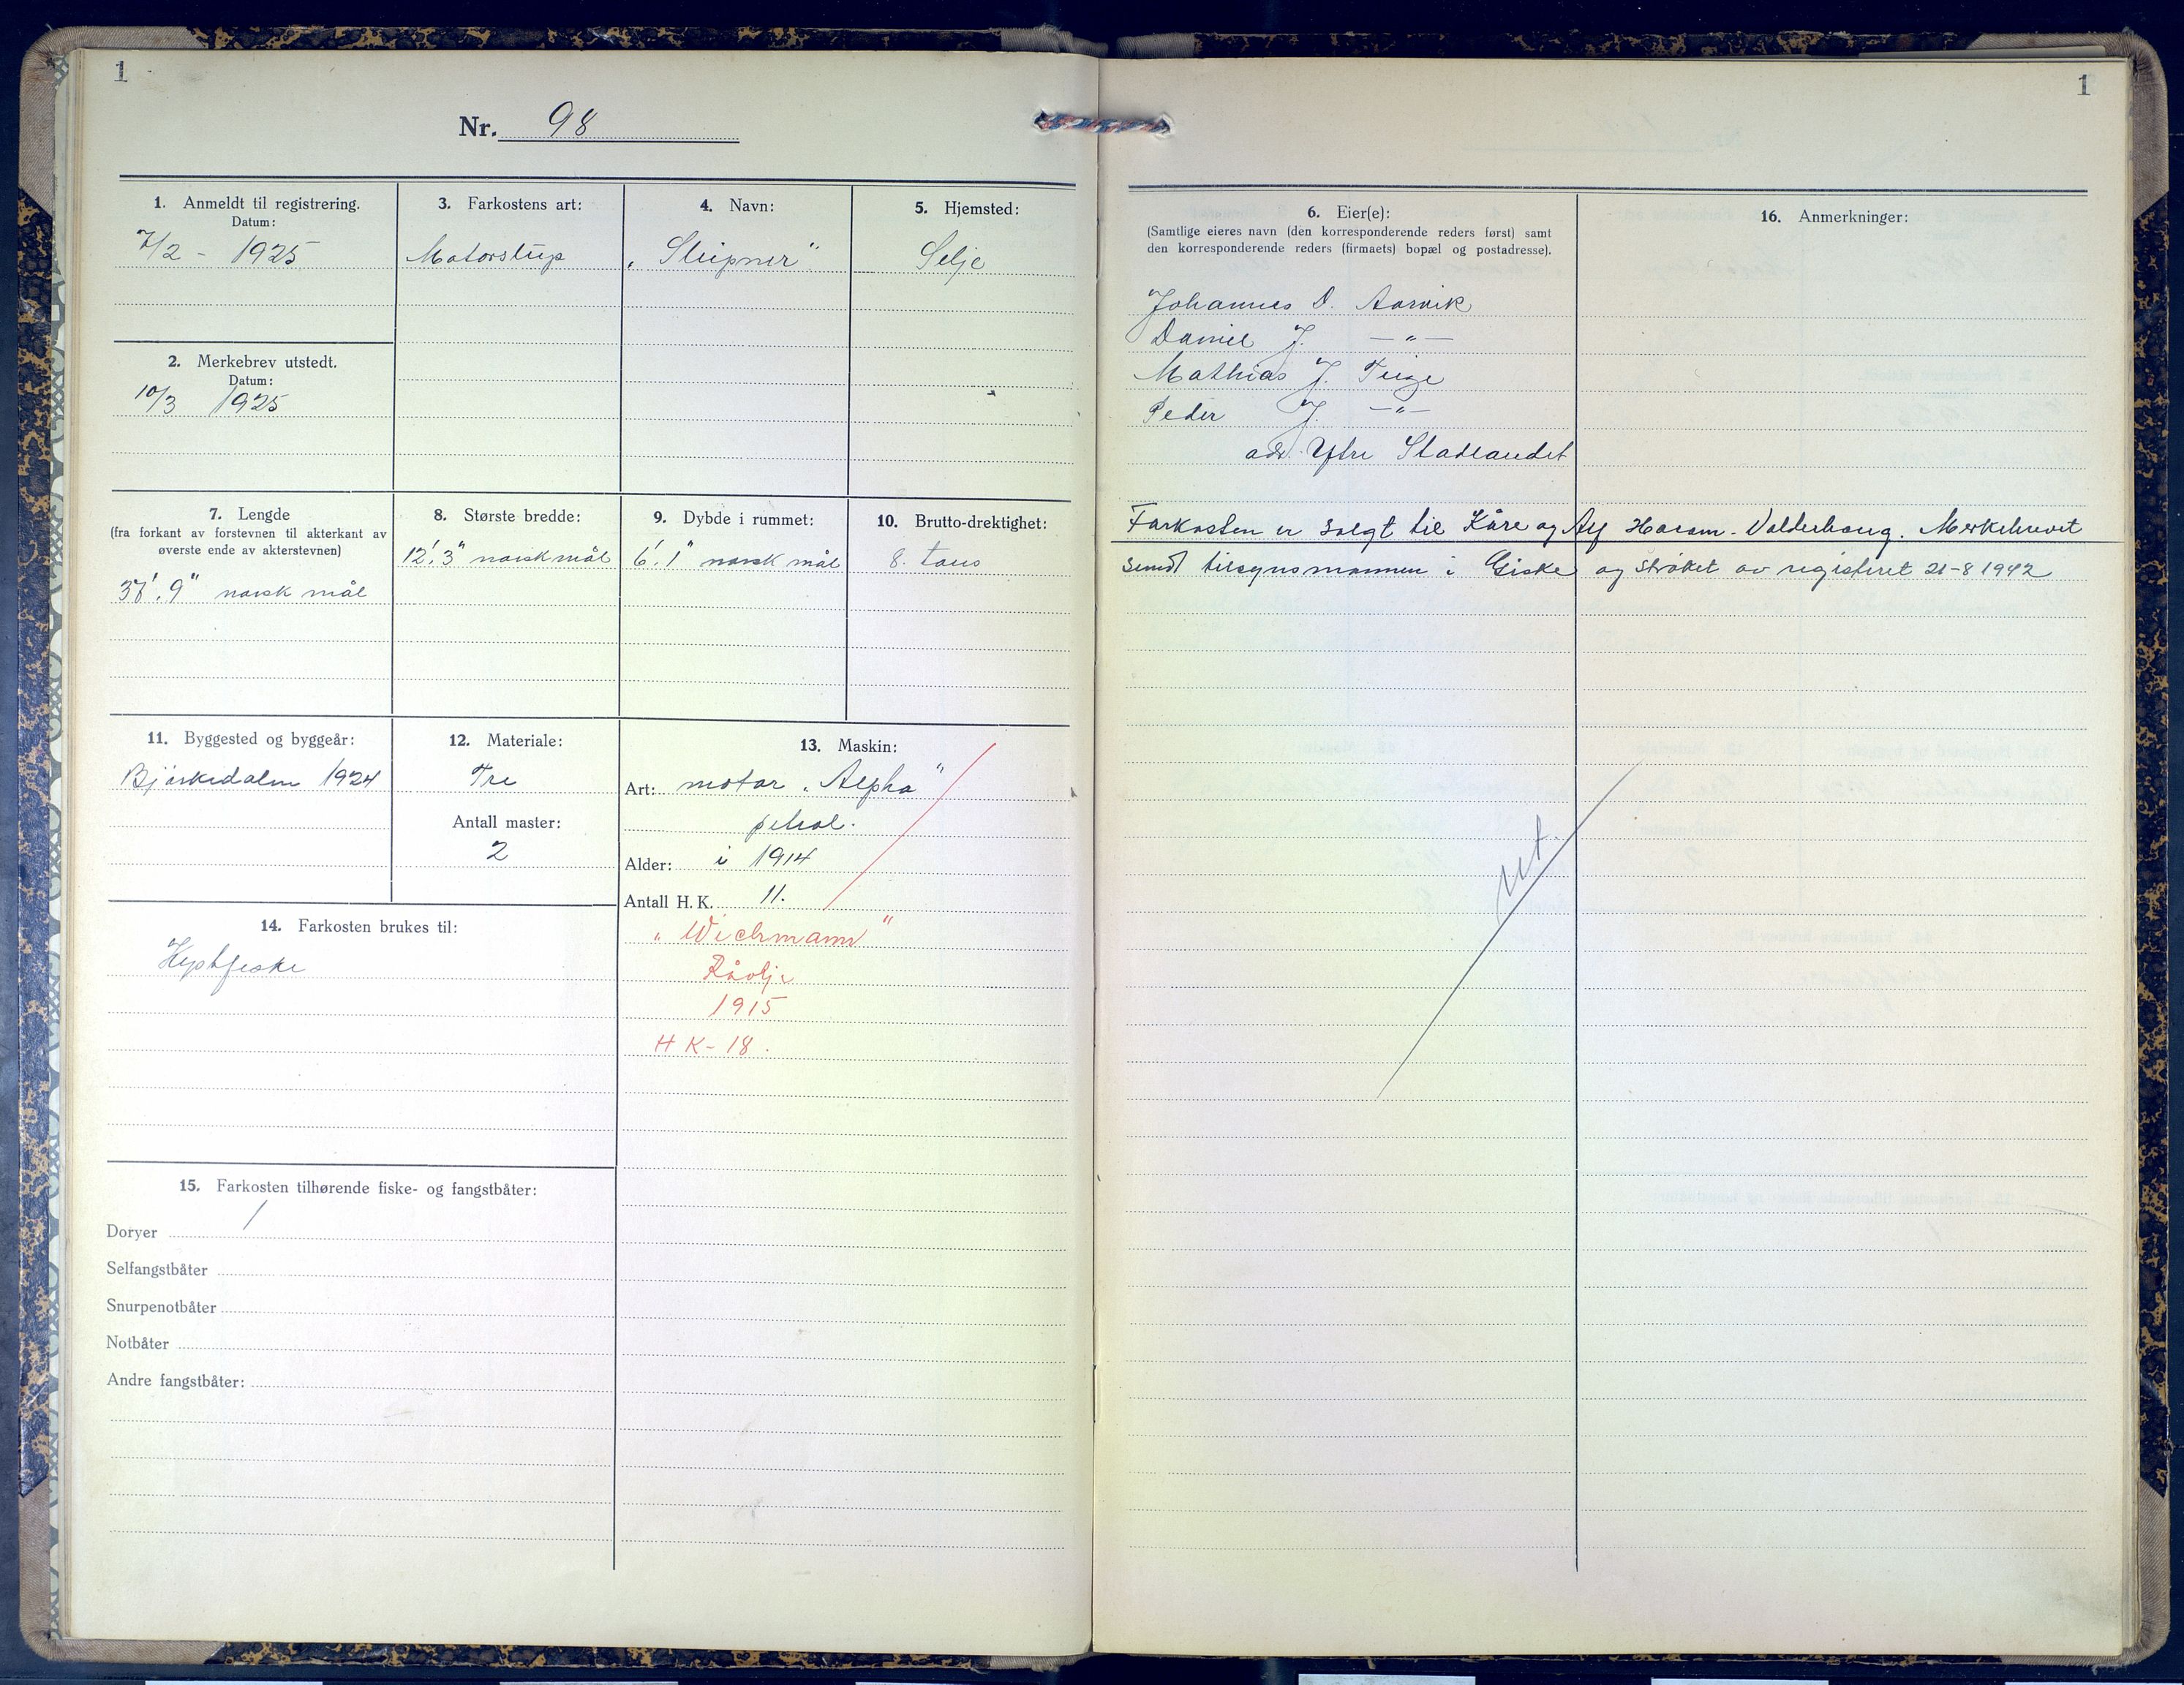 1
Nr. 98
1. Anmeldt til registrering.
Datum:
7/2 - 1925
2. Merkebrev utstedt.
Datum:
10/3 1925
3. Farkostens art:
Motorslup
4. Navn:
„Sleipner"
5. Hjemsted:
Selje
7. Lengde
(fra forkant av forstevnen til akterkant av
øverste ende av akterstevnen)
37'.9" norsk mål
8. Største bredde:
12'.3" norsk mål
9. Dybde i rummet:
6'.1" norsk mål
10. Brutto-drektighet:
8. tons
11. Byggested og byggeår:
Bjørkedalen 1924
12. Materiale:
Tre
Antall master:
2
13. Maskin:
Art: motor „Alpha"
petrol.
Alder: i 1914
Antall H. K. 11.
„Wichmann"
Råolje
1915
HK-18.
14. Farkosten brukes til:
Kystfiske
15. Farkosten tilhørende fiske- og fangstbåter:
Doryer /
Selfangstbåter
Snurpenotbåter
Notbåter
Andre fangstbåter:
1
6. Eier(e):
(Samtlige eieres navn (den korresponderende reders først) samt
den korresponderende reders (firmaets) bopæl og postadresse).
Johannes D. Aarvik
Daniel J. —"—
Mathias J. Teige
Peder J. —"—
adr. Ytre Stadlandet
16. Anmerkninger:
Farkosten er solgt til Kåre og Alf Haram. Valderhaug. Merkebrevet
sendt tilsynsmannen i Giske og strøket av registeret 21-8 1942
ut.